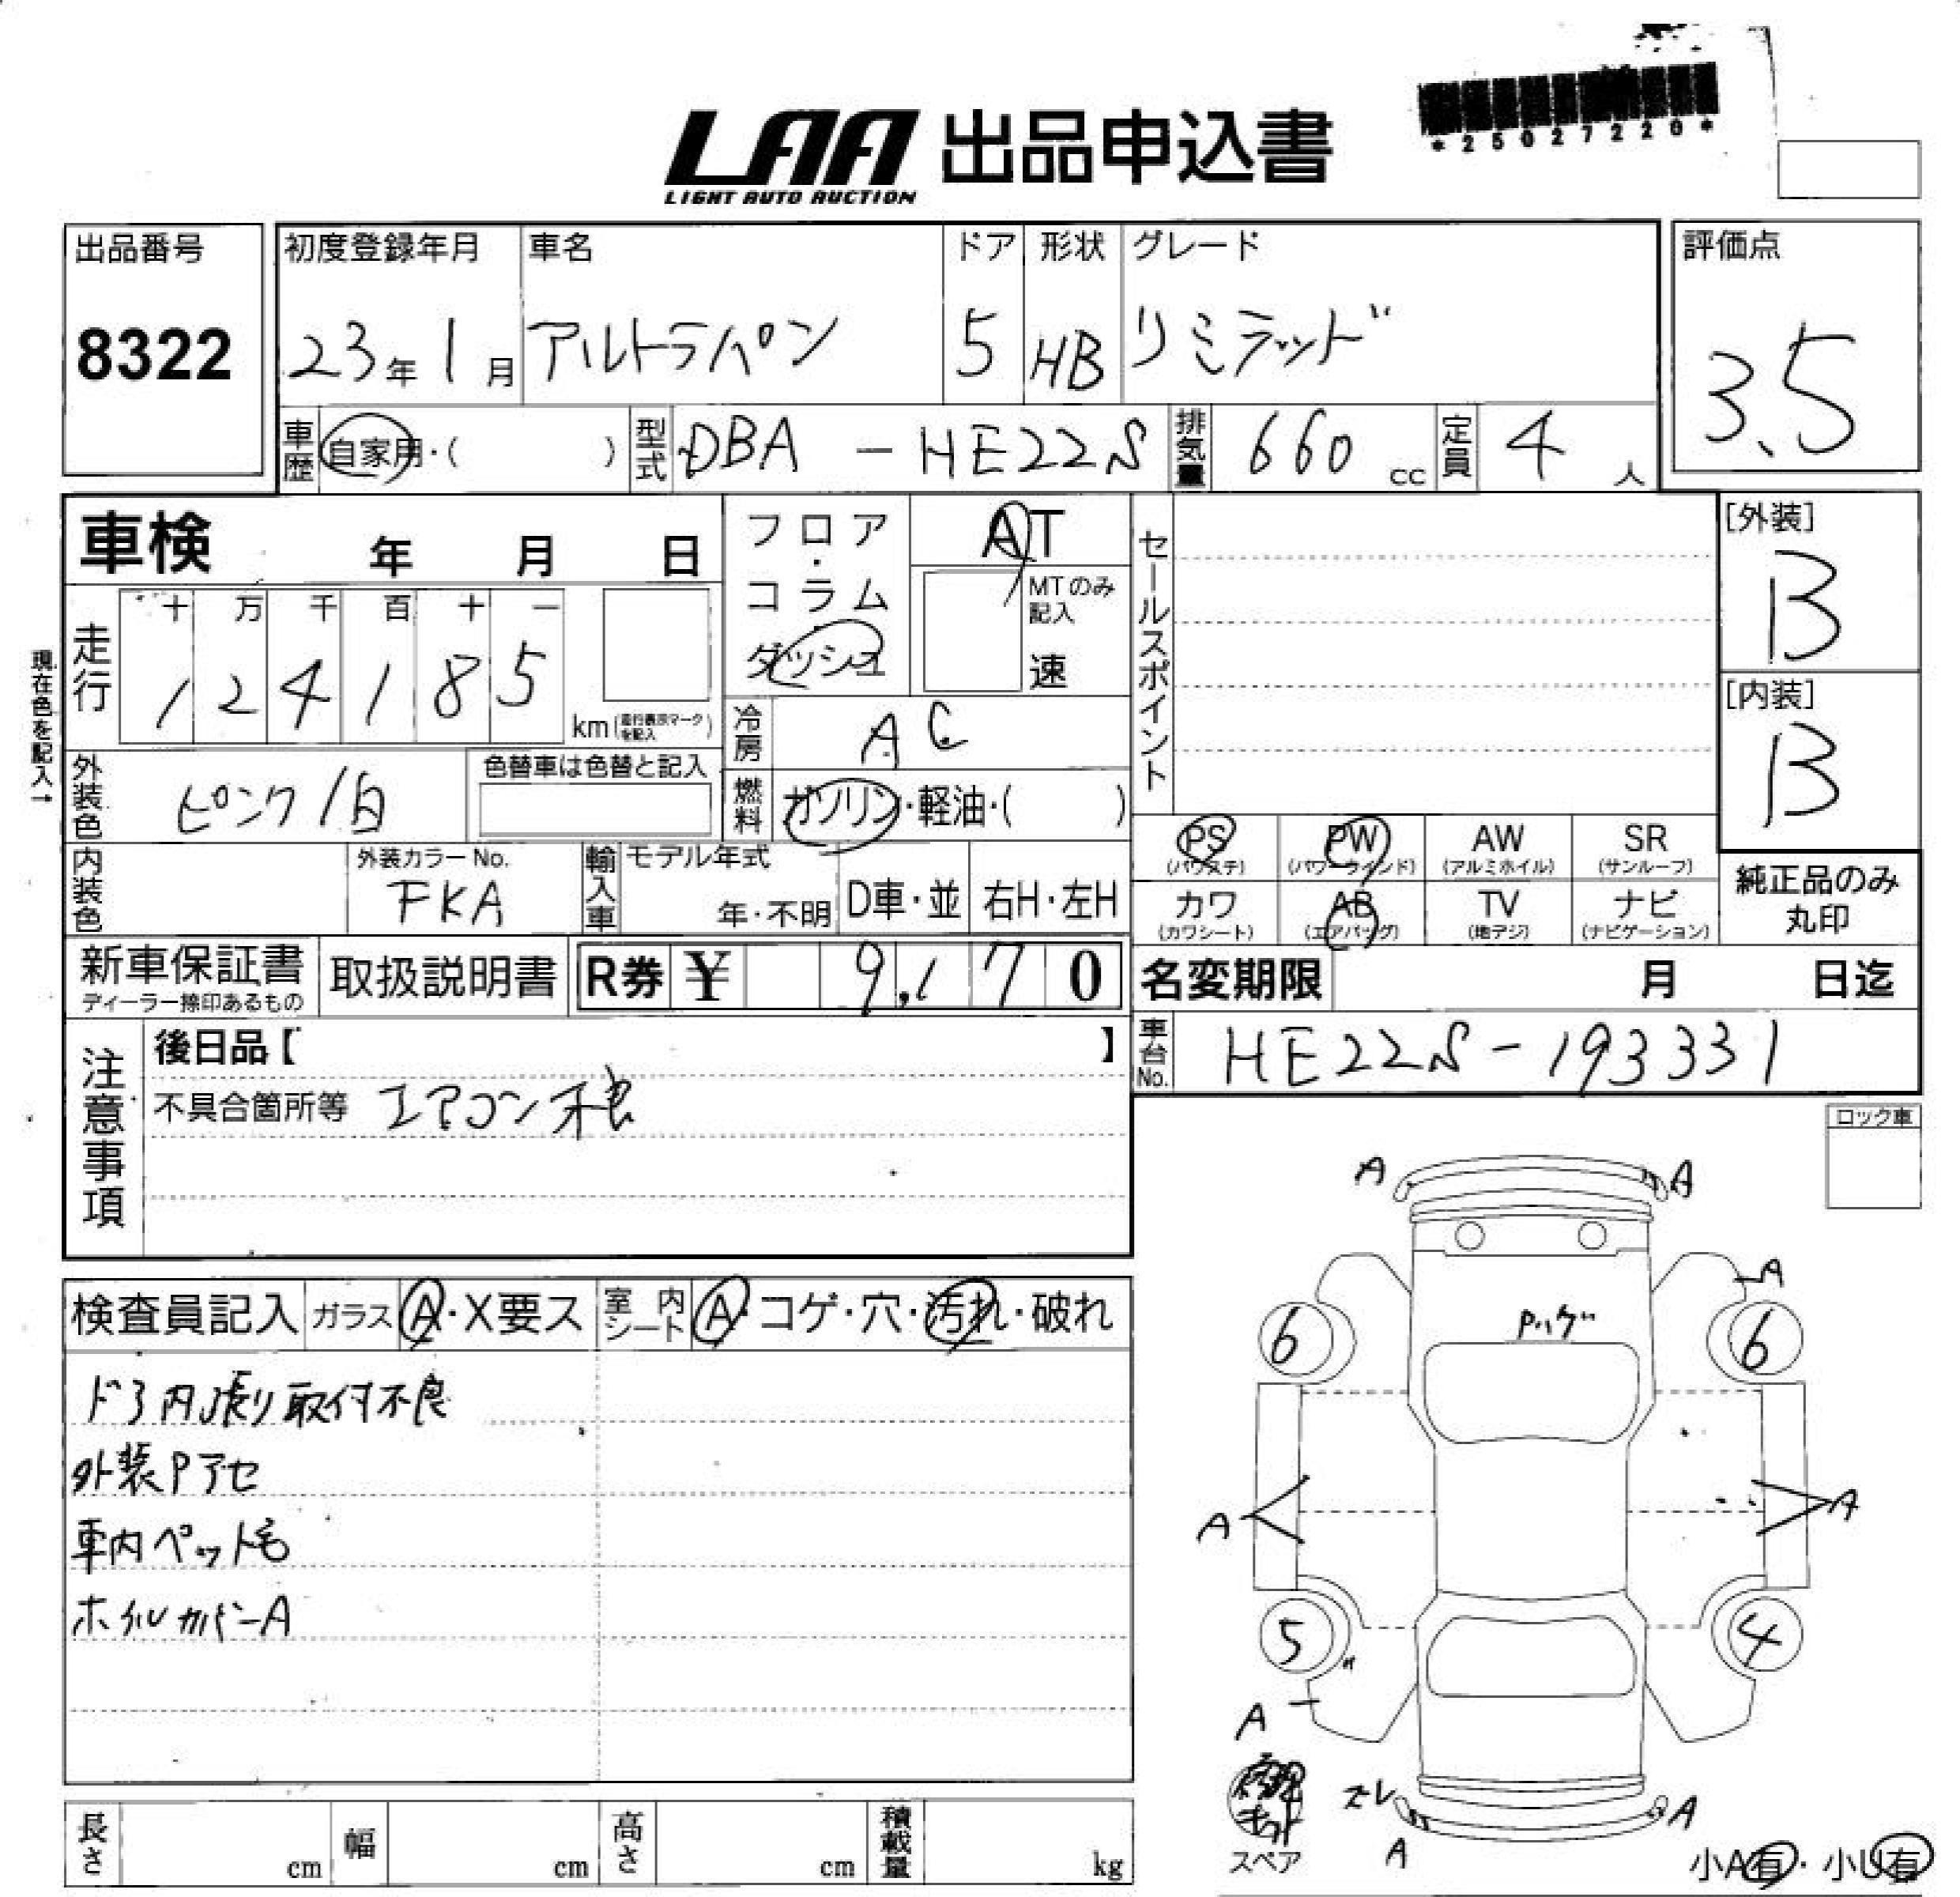 LAA 出品申込書
LIGHT AUTO AUCTION
*25027220*
出品番号
8322
初度登録年月
23年1月
車名
アルトラパン
ドア
5
形状
HB
グレード
リミテッド
評価点
3.5
車歴 自家用・( )
型式 DBA - HE22S
排気量 660 cc
定員 4 人
車検 年 月 日
フロア・コラム・ダッシュ
AT
MTのみ記入
速
セールスポイント
[外装]
B
[内装]
B
現在色を記入→
走行
十 万 千 百 十 一
1 2 4 1 8 5
km (走行表示マークを記入)
冷房 AC
外装色 ピンク/白
色替車は色替と記入
燃料 ガソリン・軽油・( )
PS (パワステ)
PW (パワーウインド)
AW (アルミホイル)
SR (サンルーフ)
内装色
外装カラーNo.
FKA
輸入車
モデル年式
年・不明
D車・並
右H・左H
カワ (カワシート)
AB (エアバッグ)
TV (地デジ)
ナビ (ナビゲーション)
純正品のみ丸印
新車保証書
ディーラー捺印あるもの
取扱説明書
R券 ¥ 9,170
名変期限 月 日迄
車台No. HE22S-193331
注意事項
後日品【 】
不具合箇所等 エアコン不良
ロック車
検査員記入
ガラス A・X要ス
室内シート A・コゲ・穴・汚れ・破れ
ドア内張り取付不良
外装Pアセ
車内ペット毛
ホイルカバーA
A A
A
Pハゲ
6 6
A A
5 4
A
修理キット
スペア
ズレ
A
A
小A有・小U有
長さ cm
幅 cm
高さ cm
積載量 kg